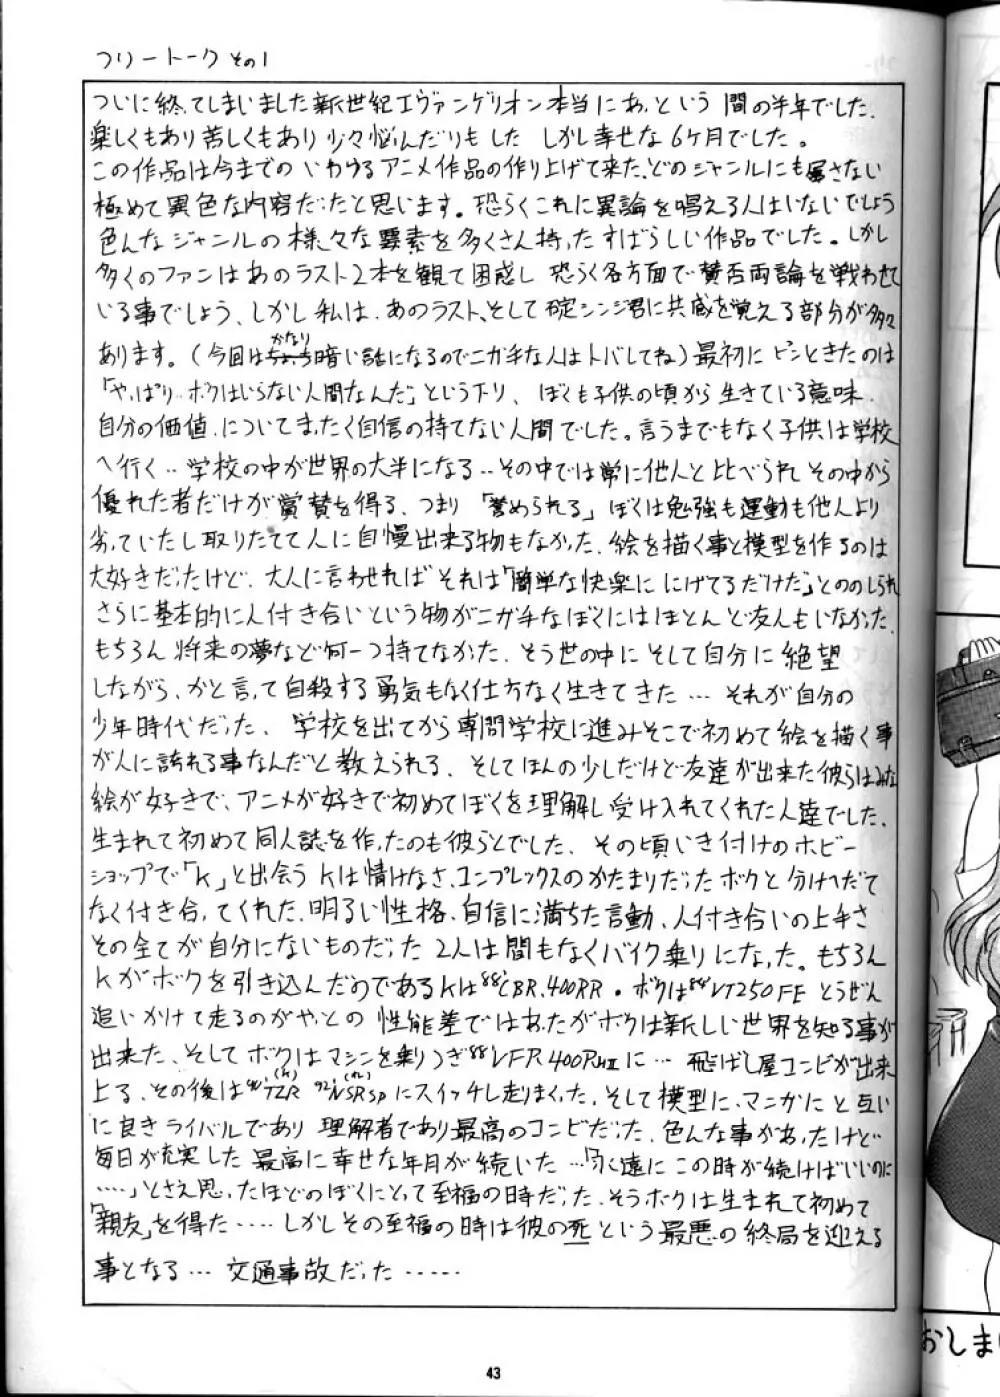 フリートーク その1
ついに終ってしまいました新世紀エヴァンゲリオン本当にあっという間の半年でした.
楽しくもあり苦しくもあり少々悩んだりもした しかし幸せな6ヶ月でした。
この作品は今までのいわゆるアニメ作品の作り上げて来た、どのジャンルにも属さない
極めて異色な内容だったと思います。恐らくこれに異論を唱える人はいないでしょう
色んなジャンルの様々な要素を多くさん持ったすばらしい作品でした。しかし
多くのファンはあのラスト2本を観て困惑し 恐らく各方面で賛否両論を戦わせて
いる事でしょう、しかし私は、あのラスト、そして碇シンジ君に共感を覚える部分が多々
あります。(今回はかなり暗い話になるのでニガ手な人はトバしてね)最初にピンときたのは
「やっぱり‥ボクはいらない人間なんだ」という下り、ぼくも子供の頃から生きている意味.
自分の価値.についてまったく自信の持てない人間でした。言うまでもなく子供は学校
へ行く‥学校の中が世界の大半になる‥その中では常に他人と比べられその中から
優れた者だけが賞賛を得る、つまり「誉められる」ぼくは勉強も運動も他人より
劣っていたし取りたてて人に自慢出来る物もなかった.絵を描く事と模型を作るのは
大好きだったけど、大人に言わせればそれは「簡単な快楽ににげてるだけだ」とののしられ
さらに基本的に人付き合いという物がニガ手なぼくにはほとんど友人もいなかった.
もちろん将来の夢など何一つ持てなかった、そう世の中にそして自分に絶望
しながら、かと言って自殺する勇気もなく仕方なく生きてきた…それが自分の
少年時代だった、学校を出てから専門学校に進みそこで初めて絵を描く事
が人に誇れる事なんだと教えられる、そしてほんの少しだけど友達が出来た彼らはみな
絵が好きで、アニメが好きで初めてぼくを理解し受け入れてくれた人達でした、
生まれて初めて同人誌を作ったのも彼らとでした、その頃いき付けのホビー
ショップで「K」と出会うKは情けなさ、コンプレックスのかたまりだったボクと分けへだて
なく付き合ってくれた、明るい性格、自信に満ちた言動、人付き合いの上手さ
その全てが自分にないものだった2人は間もなくバイク乗りになった。もちろん
Kがボクを引き込んだのであるKは'88CBR.400RR・ボクは'88VT250FEとうぜん
追いかけて走るのがやっとの性能差ではあったがボクは新しい世界を知る事が
出来た、そしてボクはマシンを乗りつぎ'88VFR400RⅢに…飛ばし屋コンビが出来
上る、その後は'90TZR(K)'92NSRSP(オレ)にスイッチし走りまくった、そして模型に、マンガにと互い
に良きライバルであり理解者であり最高のコンビだった、色んな事があったけど
毎日が充実した最高に幸せな年月が続いた…「永遠にこの時が続けばいいのに
……」とさえ思ったほどのぼくにとって至福の時だった、そうボクは生まれて初めて
「親友」を得た……しかしその至福の時は彼の死という最悪の終局を迎える
事となる…交通事故だった……
43
おしまい